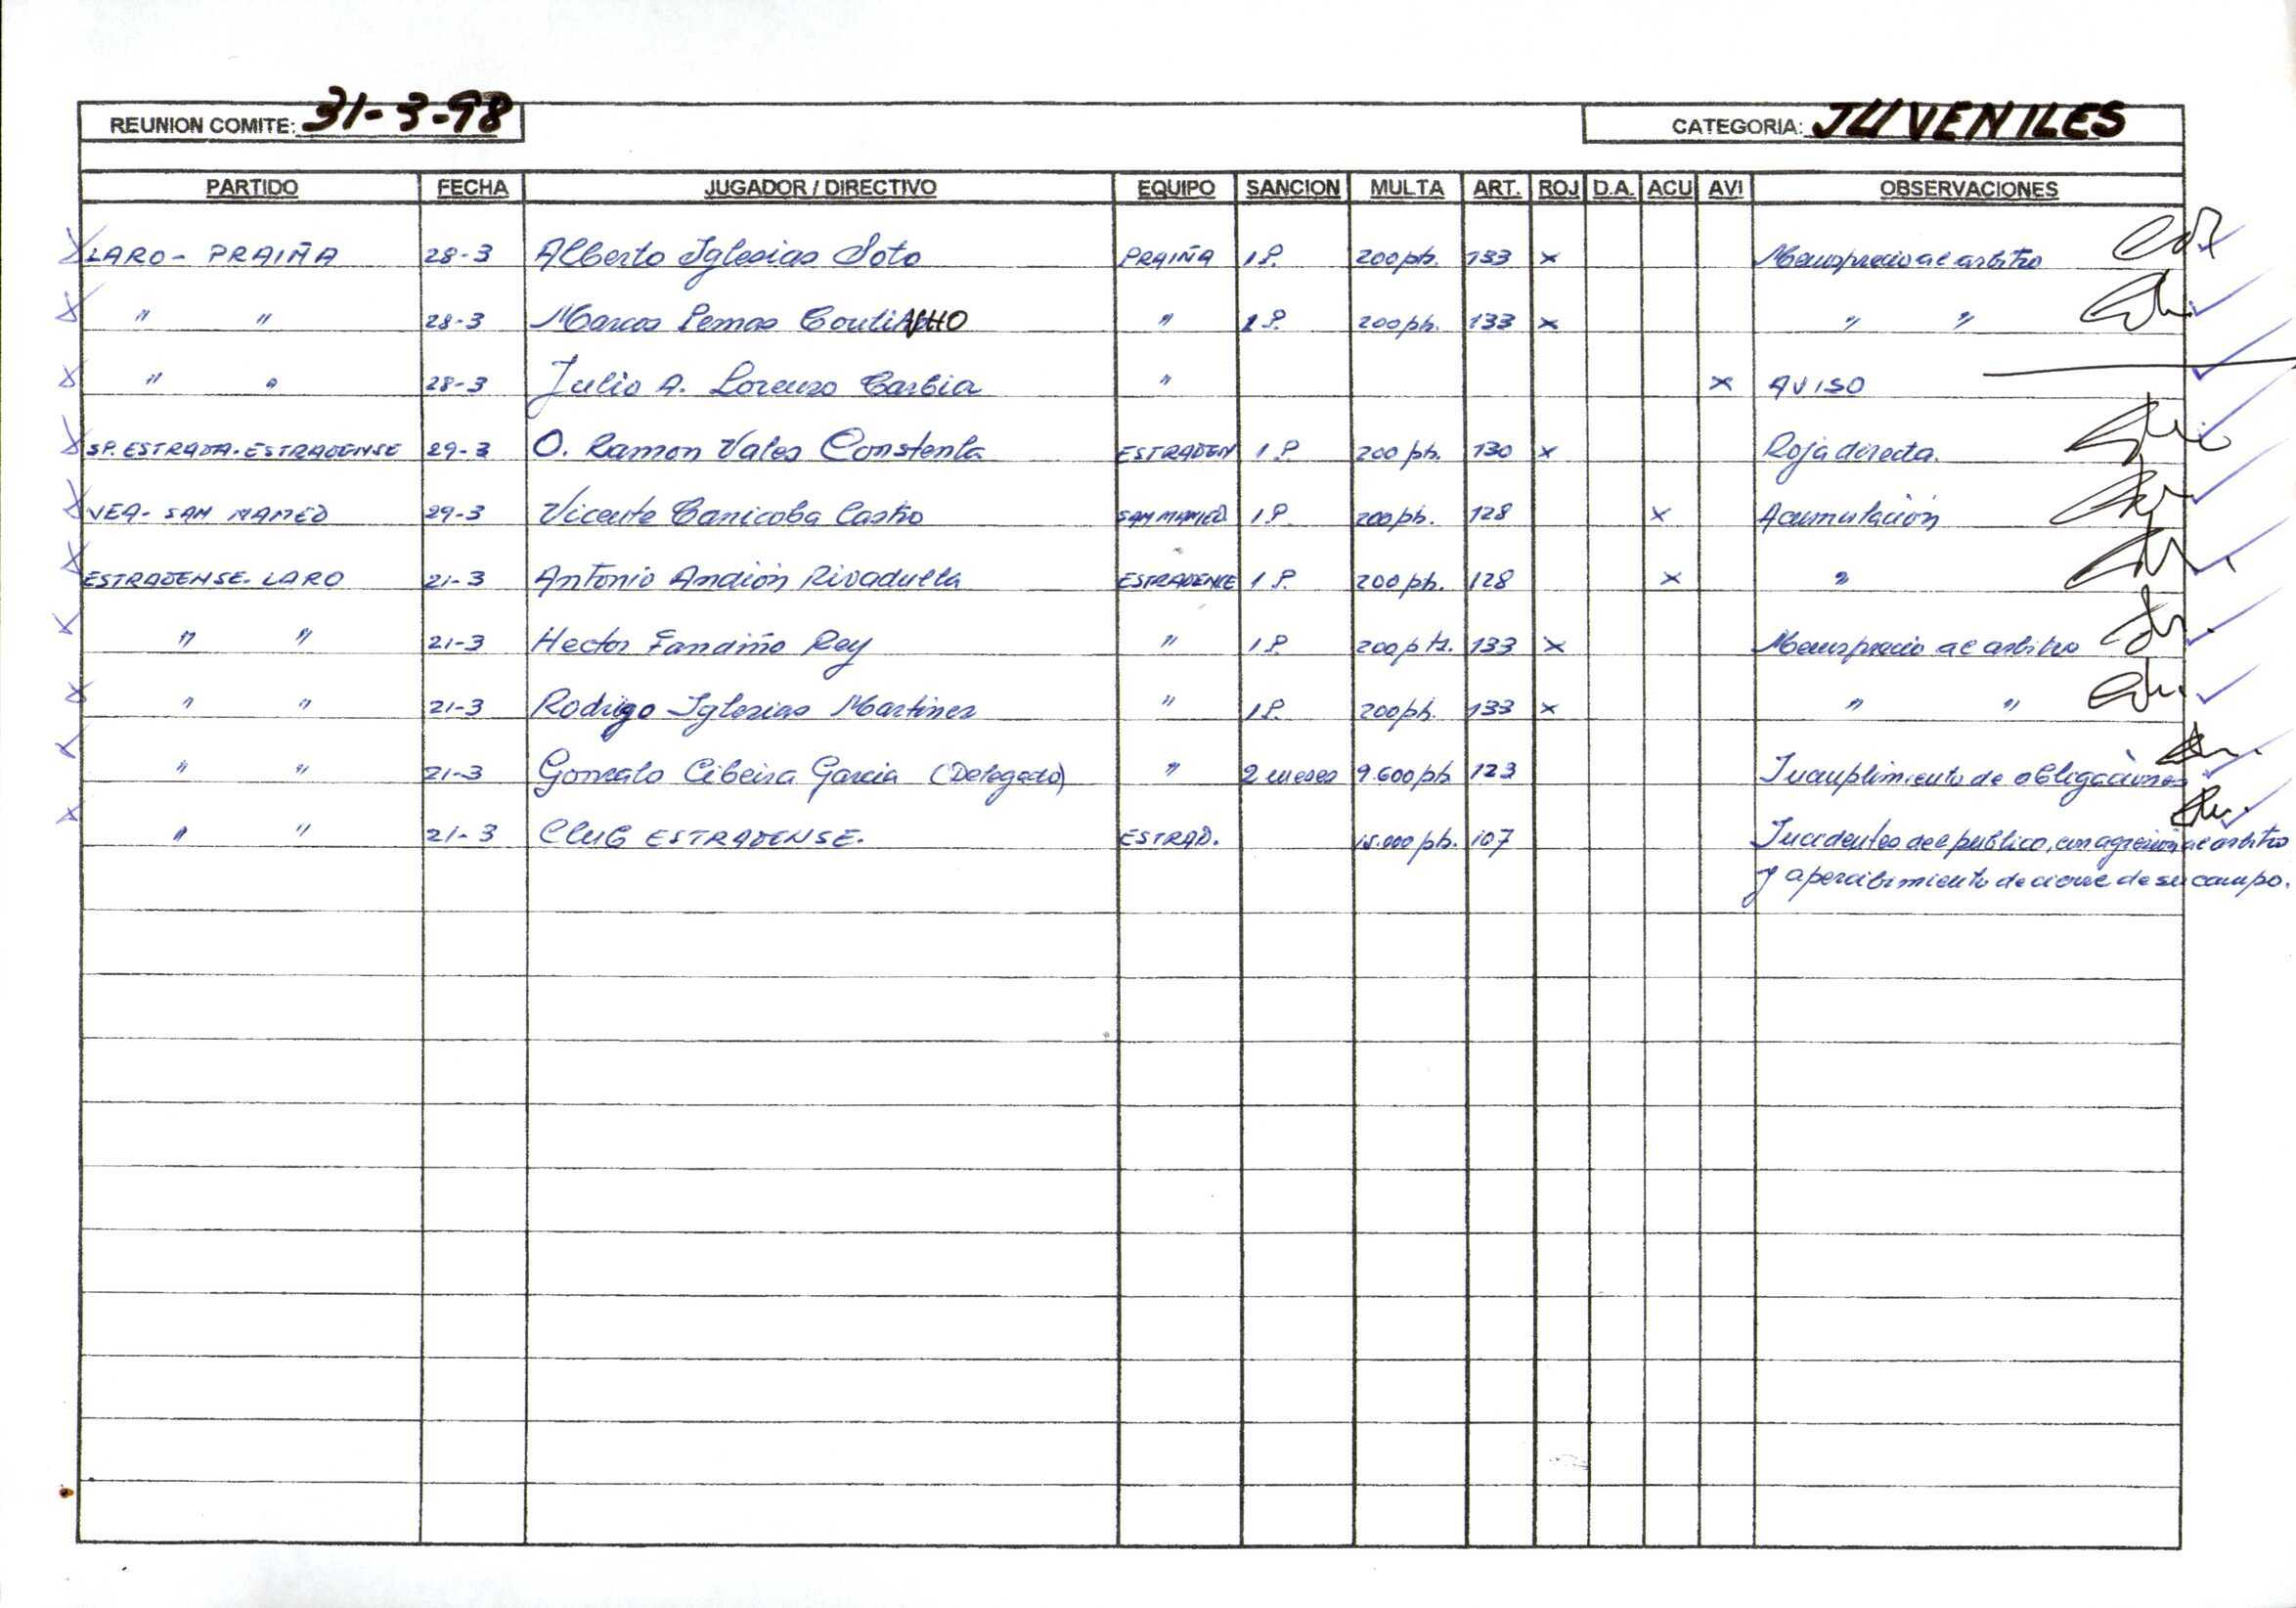 REUNION COMITE: 31-3-98 CATEGORIA: JUVENILES
PARTIDO FECHA JUGADOR / DIRECTIVO EQUIPO SANCION MULTA ART. ROJ D.A. ACU AVI OBSERVACIONES
LARO - PRAIÑA 28-3 Alberto Iglesias Soto PRAIÑA 1 P. 200 pts. 133 x Menosprecio al arbitro
" " 28-3 Marcos Pemas CoutiNHO " 1 P. 200 pts. 133 x " "
" " 28-3 Julio A. Lorenzo Carbia " x AVISO
SP. ESTRADA - ESTRADENSE 29-3 O. Ramon Vales Constenla ESTRADEN 1 P. 200 pts. 130 x Roja directa.
VEA - SAN MAMED 29-3 Vicente Canicoba Castro SAN MAMED 1 P. 200 pts. 128 x Acumulación
ESTRADENSE - LARO 21-3 Antonio Andión Rivadulla ESTRADENCE 1 P. 200 pts. 128 x "
" " 21-3 Hector Fandiño Rey " 1 P. 200 pts. 133 x Menosprecio al arbitro
" " 21-3 Rodrigo Iglesias Martinez " 1 P. 200 pts. 133 x " "
" " 21-3 Gonzalo Cibeira Garcia (Delegado) " 2 meses 9.600 pts. 123 Incumplimiento de obligaciones
" " 21-3 CLUB ESTRADENSE. ESTRAD. 15.000 pts. 107 Incidentes del publico, con agresión al arbitro
y apercibimiento de cierre de su campo.